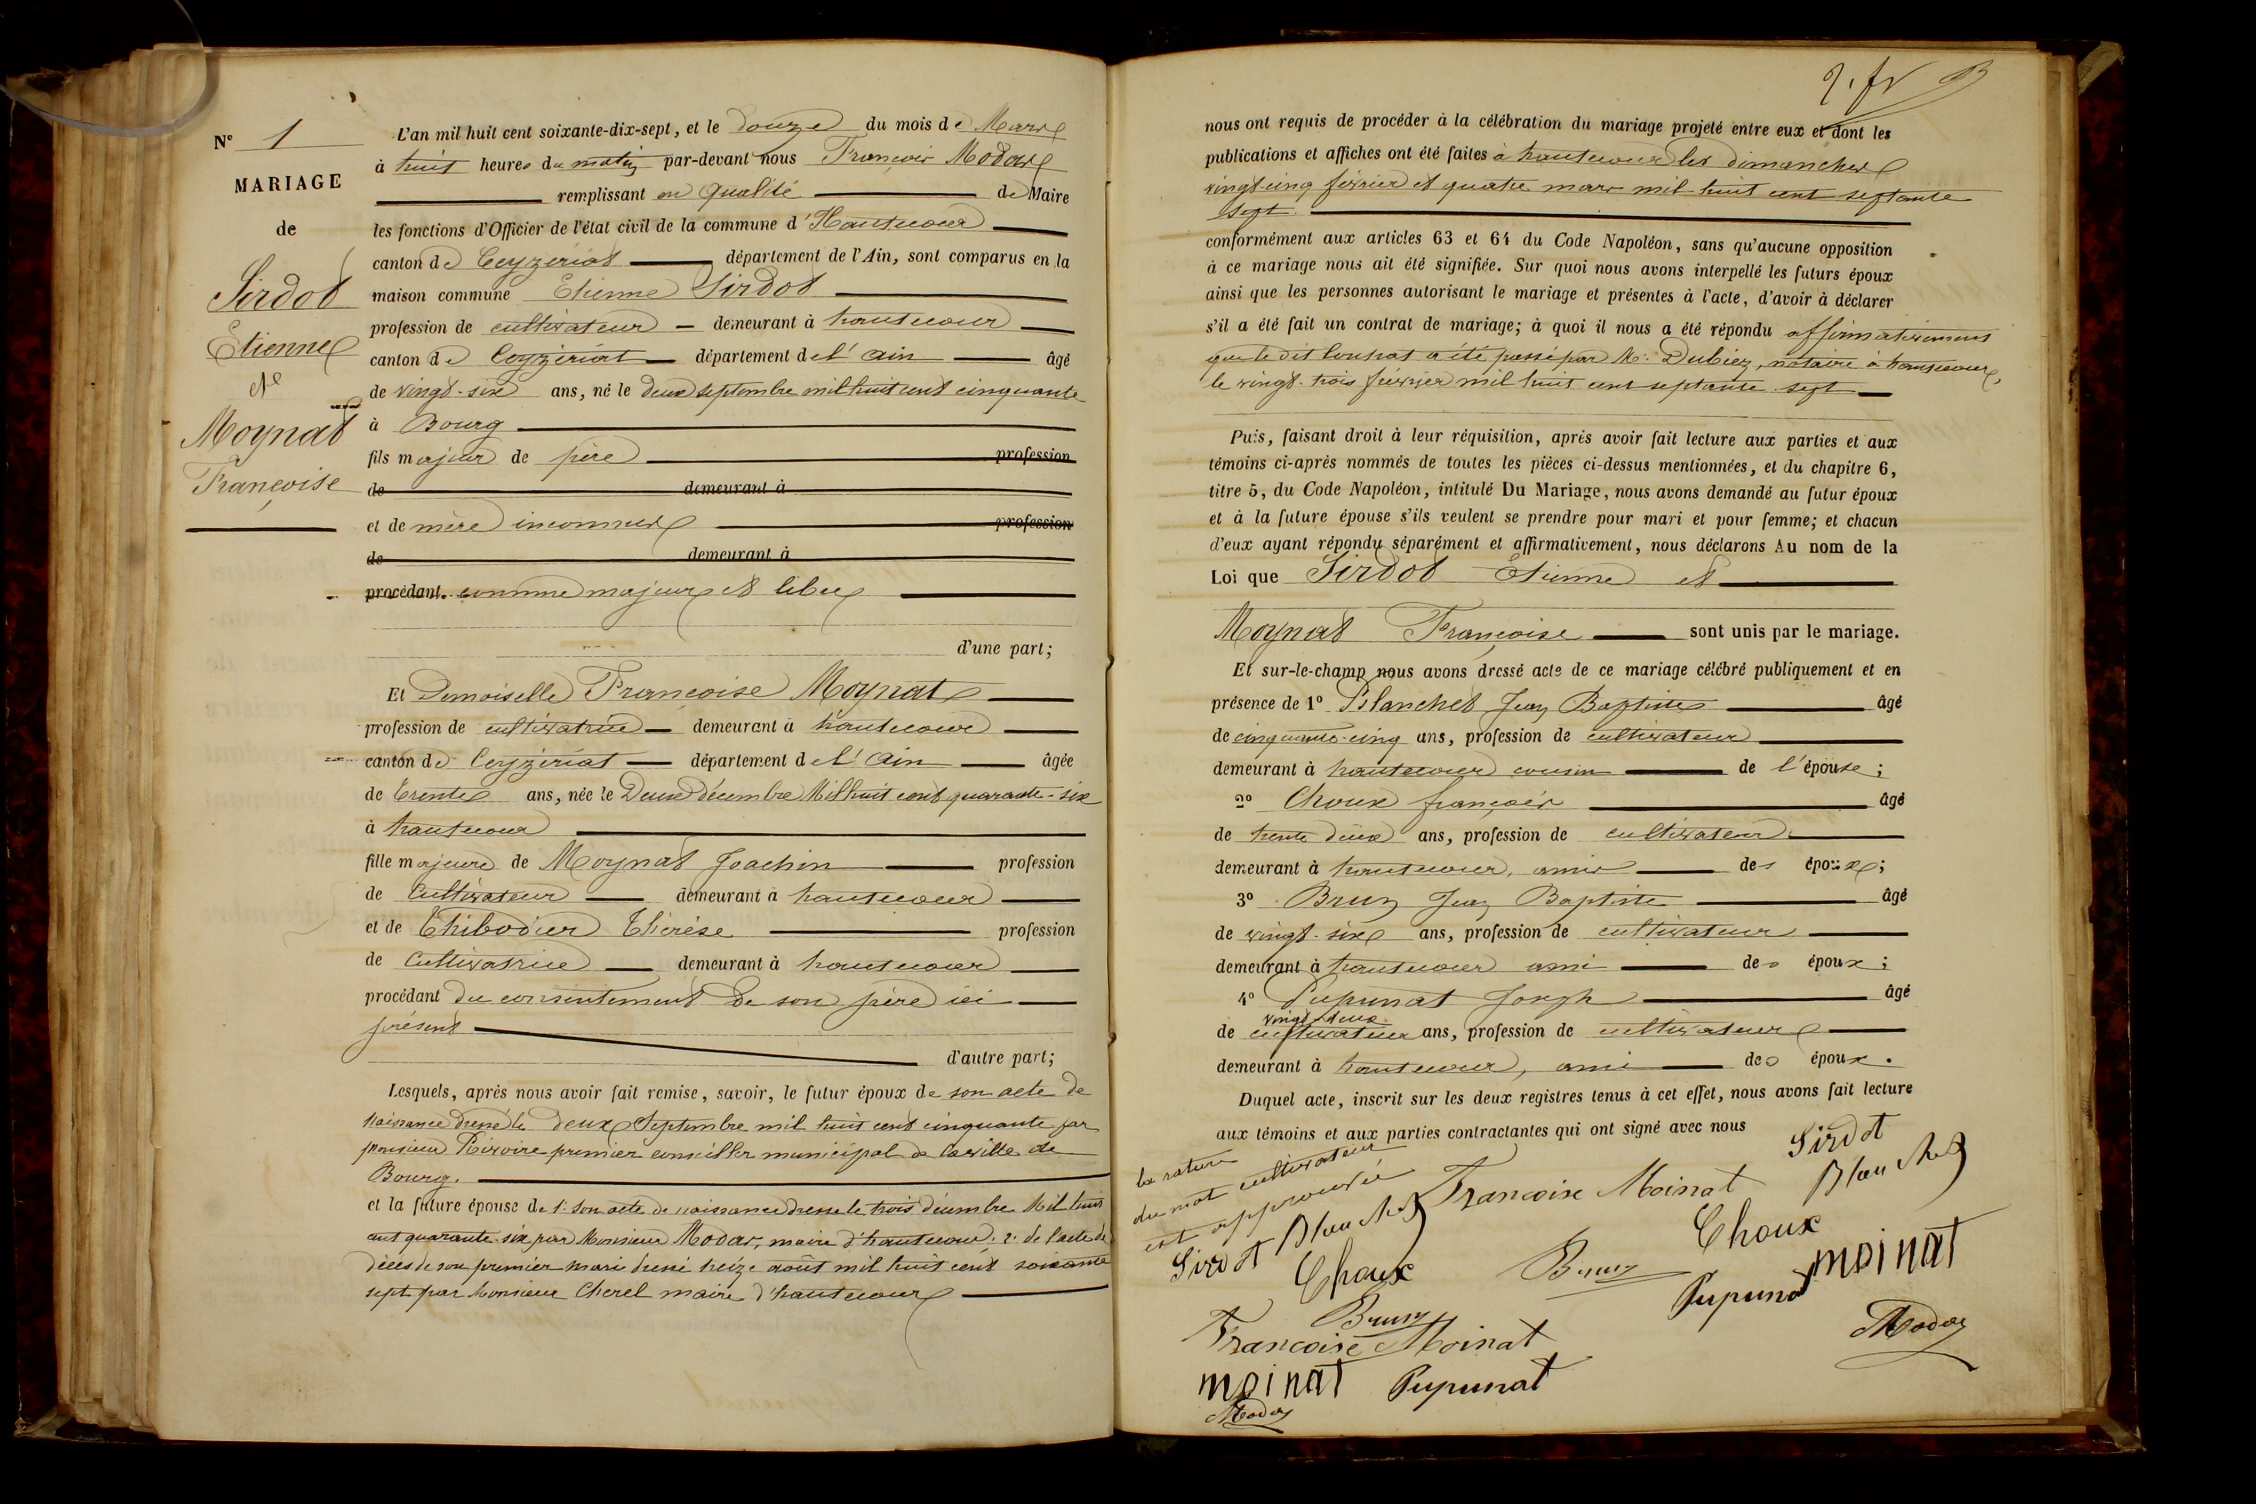 N° 1
MARIAGE
de
Sirdot
Etienne
et
Moynat
Françoise
L'an mil huit cent soixante-dix-sept, et le douze du mois de Mars
à huit heures du matin par-devant nous François Modas
remplissant en qualité de Maire
les fonctions d'Officier de l'état civil de la commune d'Hautecour
canton de Ceyzériat département de l'Ain, sont comparus en la
maison commune Etienne Sirdot
profession de cultivateur demeurant à hautecour
canton de Ceyzériat département de l'Ain âgé
de vingt-six ans, né le deux septembre mil huit cent cinquante
à Bourg
fils majeur de père profession
de demeurant à
et de mère inconnus profession
de demeurant à
procédant comme majeur et libre
d'une part;
Et Demoiselle Françoise Moynat
profession de cultivatrice demeurant à hautecour
canton de Ceyzériat département de l'Ain âgée
de trente ans, née le Deux décembre Mil huit cent quarante-six
à hautecour
fille majeure de Moynat Joachin profession
de Cultivateur demeurant à hautecour
et de Thibodier Thérèse profession
de Cultivatrice demeurant à hautecour
procédant du consentement de son père ici
présent
d'autre part;
Lesquels, après nous avoir fait remise, savoir, le futur époux de son acte de
naissance dressé le deux Septembre mil huit cent cinquante par
monsieur Rivoire premier conseiller municipal de la ville de
Bourg.
et la future épouse de 1° son acte de naissance dressé le trois décembre Mil huit
cent quarante six par Monsieur Modas, maire d'hautecour. 2° de l'acte de
décès de son premier mari dressé treize août mil huit cent soixante
sept par Monsieur Cherel maire d'hautecour
nous ont requis de procéder à la célébration du mariage projeté entre eux et dont les
publications et affiches ont été faites à hautecour les dimanches
vingt-cinq février et quatre mars mil huit cent septante
sept
conformément aux articles 63 et 64 du Code Napoléon, sans qu'aucune opposition
à ce mariage nous ait été signifiée. Sur quoi nous avons interpellé les futurs époux
ainsi que les personnes autorisant le mariage et présentes à l'acte, d'avoir à déclarer
s'il a été fait un contrat de mariage; à quoi il nous a été répondu affirmativement
que le dit Contrat a été passé par Me Dubiez, notaire à hautecour,
le vingt-trois février mil huit cent septante-sept
Puis, faisant droit à leur réquisition, après avoir fait lecture aux parties et aux
témoins ci-après nommés de toutes les pièces ci-dessus mentionnées, et du chapitre 6,
titre 5, du Code Napoléon, intitulé Du Mariage, nous avons demandé au futur époux
et à la future épouse s'ils veulent se prendre pour mari et pour femme; et chacun
d'eux ayant répondu séparément et affirmativement, nous déclarons Au nom de la
Loi que Sirdot Etienne et
Moynat Françoise sont unis par le mariage.
Et sur-le-champ nous avons dressé acte de ce mariage célébré publiquement et en
présence de 1° Blanchet Jean Baptiste âgé
de cinquante-cinq ans, profession de cultivateur
demeurant à hautecour cousin de l'épouse;
2° Choux françois âgé
de trente deux ans, profession de cultivateur
demeurant à hautecour, amis des époux;
3° Brun Jean Baptiste âgé
de vingt-six ans, profession de cultivateur
demeurant à hautecour ami des époux;
4° Pupunat Joseph âgé
vingt-deux
de cultivateur ans, profession de cultivateur
demeurant à hautecour, ami des époux.
Duquel acte, inscrit sur les deux registres tenus à cet effet, nous avons fait lecture
aux témoins et aux parties contractantes qui ont signé avec nous
la rature
du mot cultivateur
est approuvée
Sirdot
Francoise Moinat Blanchet
Sirdot Blanchet
Choux
Choux Brun moinat
Brun Pupunat
Francoise Moinat Modas
moinat Pupunat
Modas